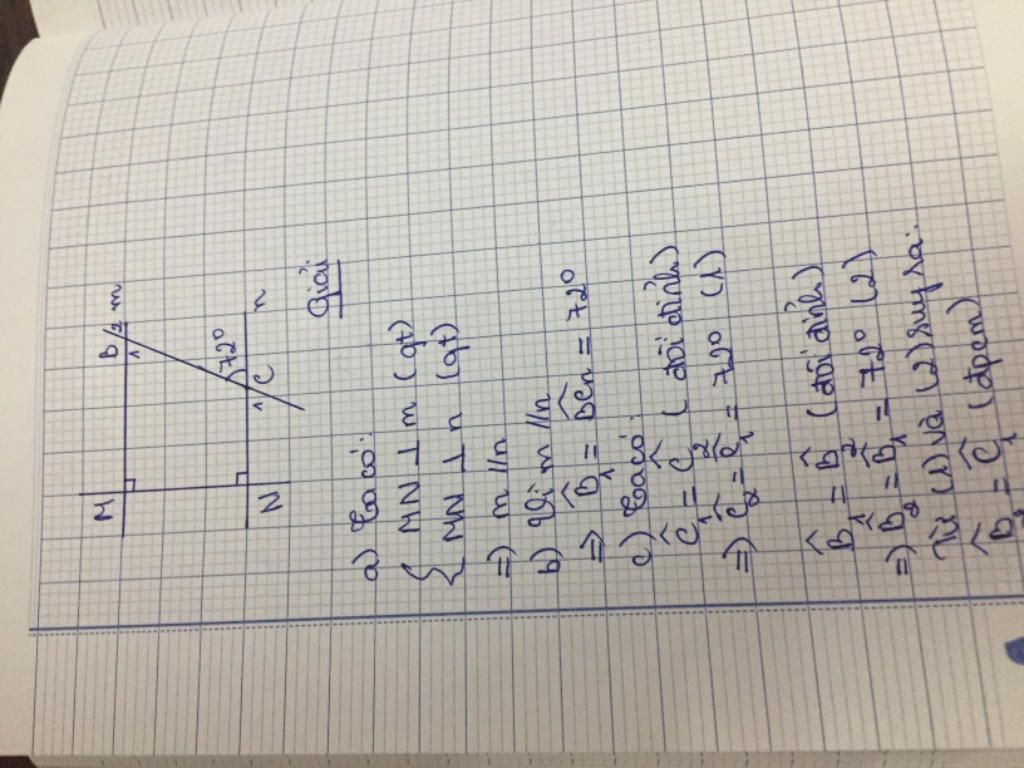 M B 2 m
1
72°
1 C n
N
Giải
a) Ta có:
{ MN ⊥ m (gt)
{ MN ⊥ n (gt)
=) m // n
b) Vì m // n
=) B̂₁ = BĈn = 72°
c) Ta có:
Ĉ₁ = Ĉ₂ (đối đỉnh)
=) Ĉ₂ = Ĉ₁ = 72° (1)
B̂₁ = B̂₂ (đối đỉnh)
=) B̂₂ = B̂₁ = 72° (2)
Từ (1) và (2) suy ra:
B̂₂ = Ĉ₁ (đpcm)